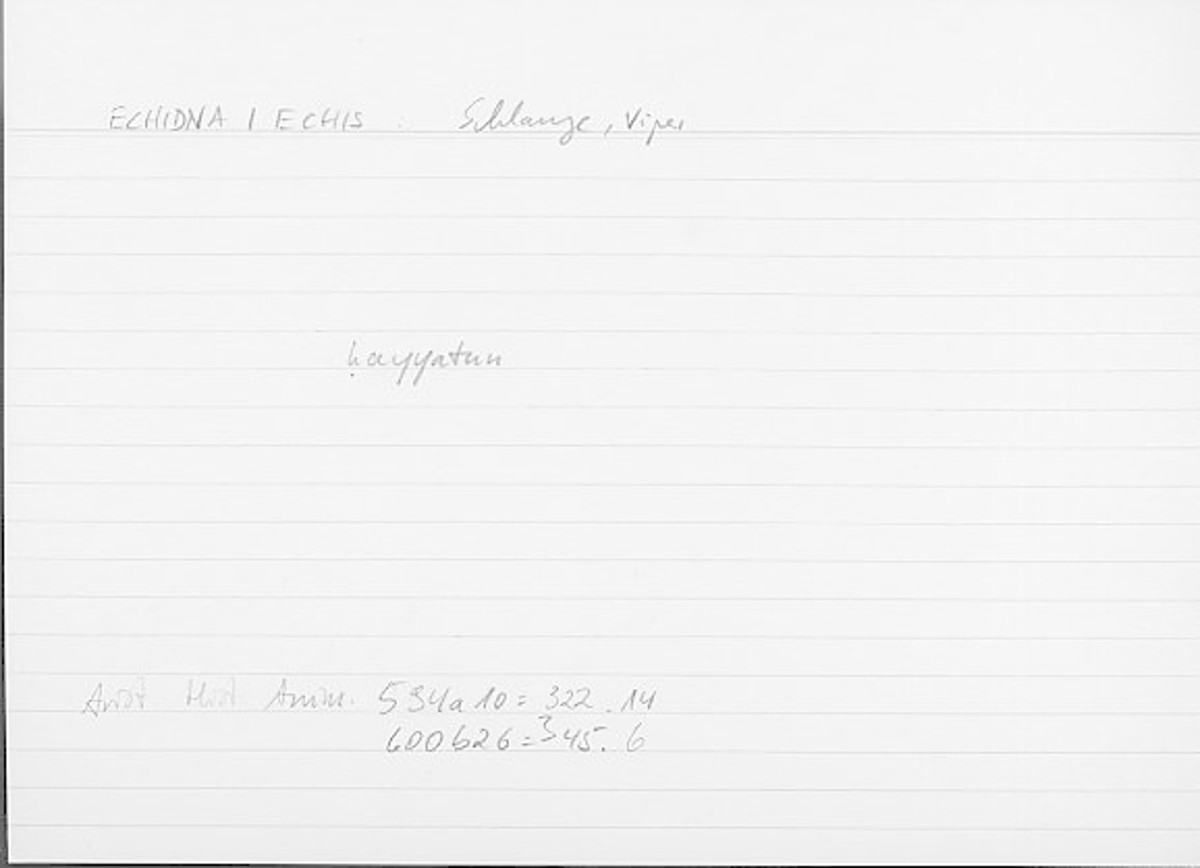 ECHIDNA / ECHIS : Schlange, Viper
ḥayyatun
Arist Hist Anim. 534a10 = 322.14
600b26 = 345.6